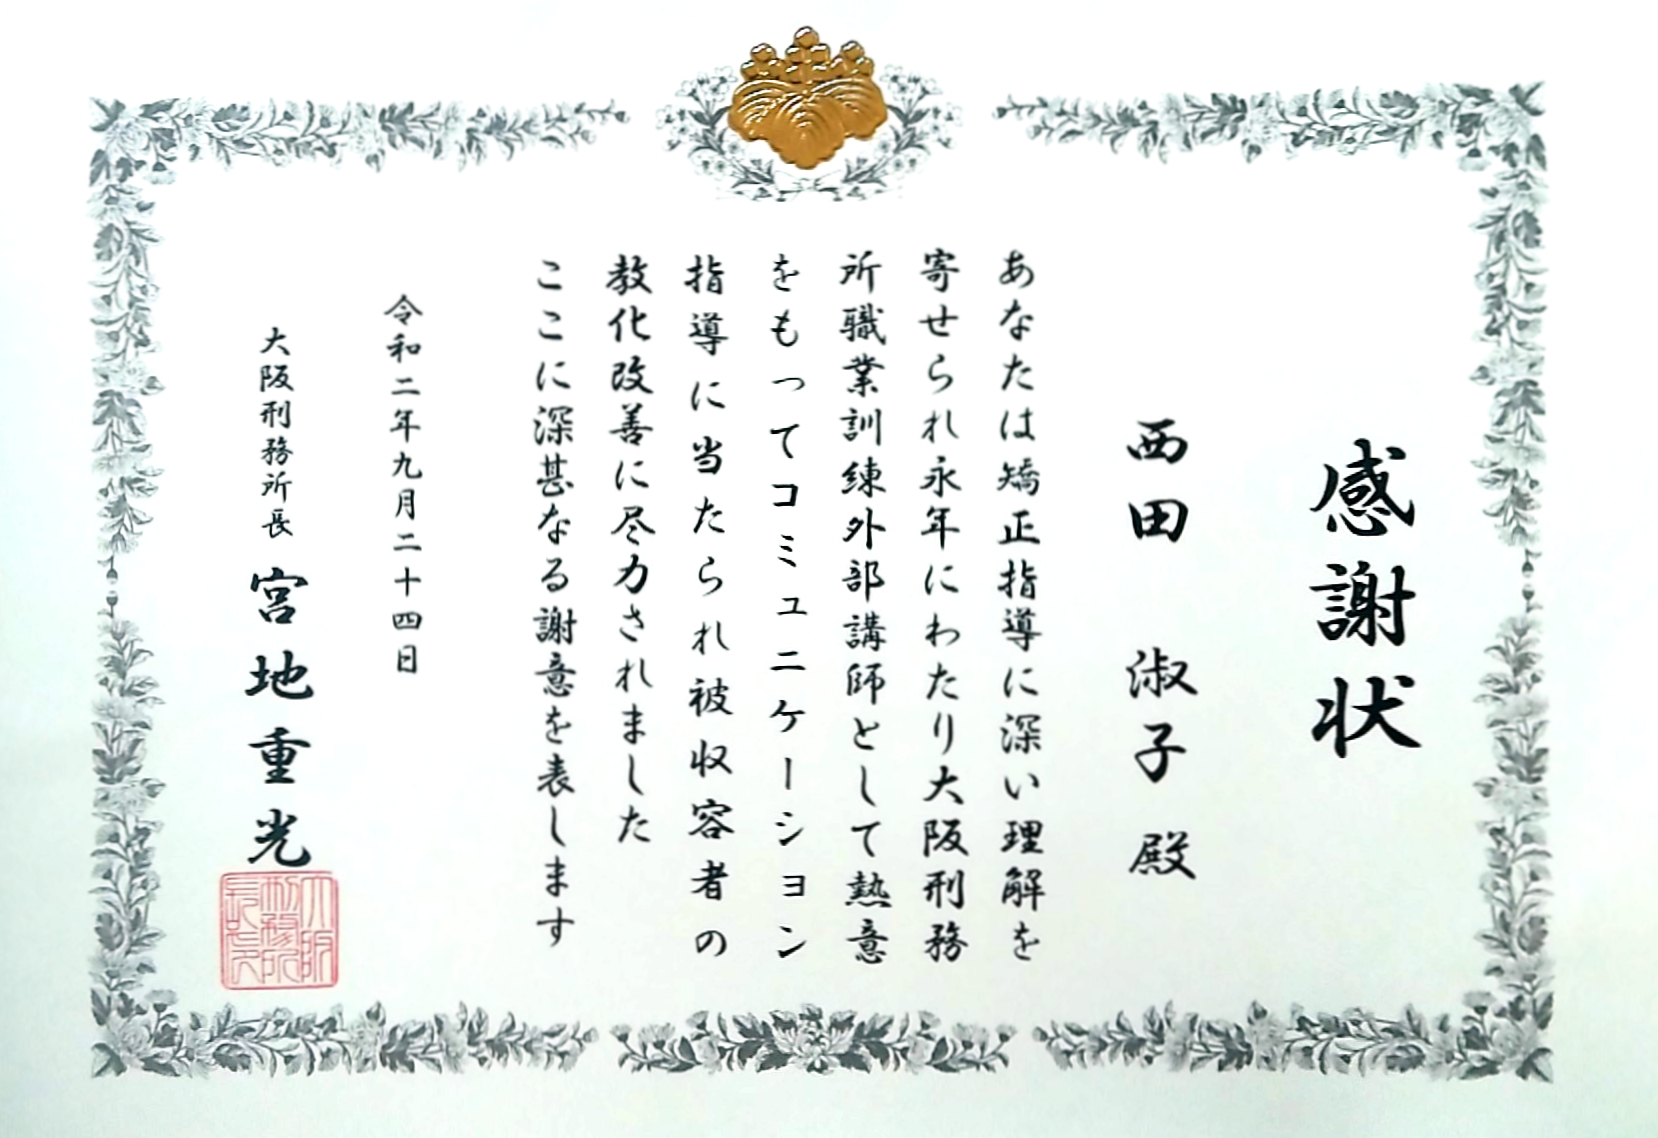 感謝状
西田 淑子 殿
あなたは矯正指導に深い理解を
寄せられ永年にわたり大阪刑務
所職業訓練外部講師として熱意
をもってコミュニケーション
指導に当たられ被収容者の
教化改善に尽力されました
ここに深甚なる謝意を表します
令和二年九月二十四日
大阪刑務所長 宮地重光
大阪
刑務所
長之印